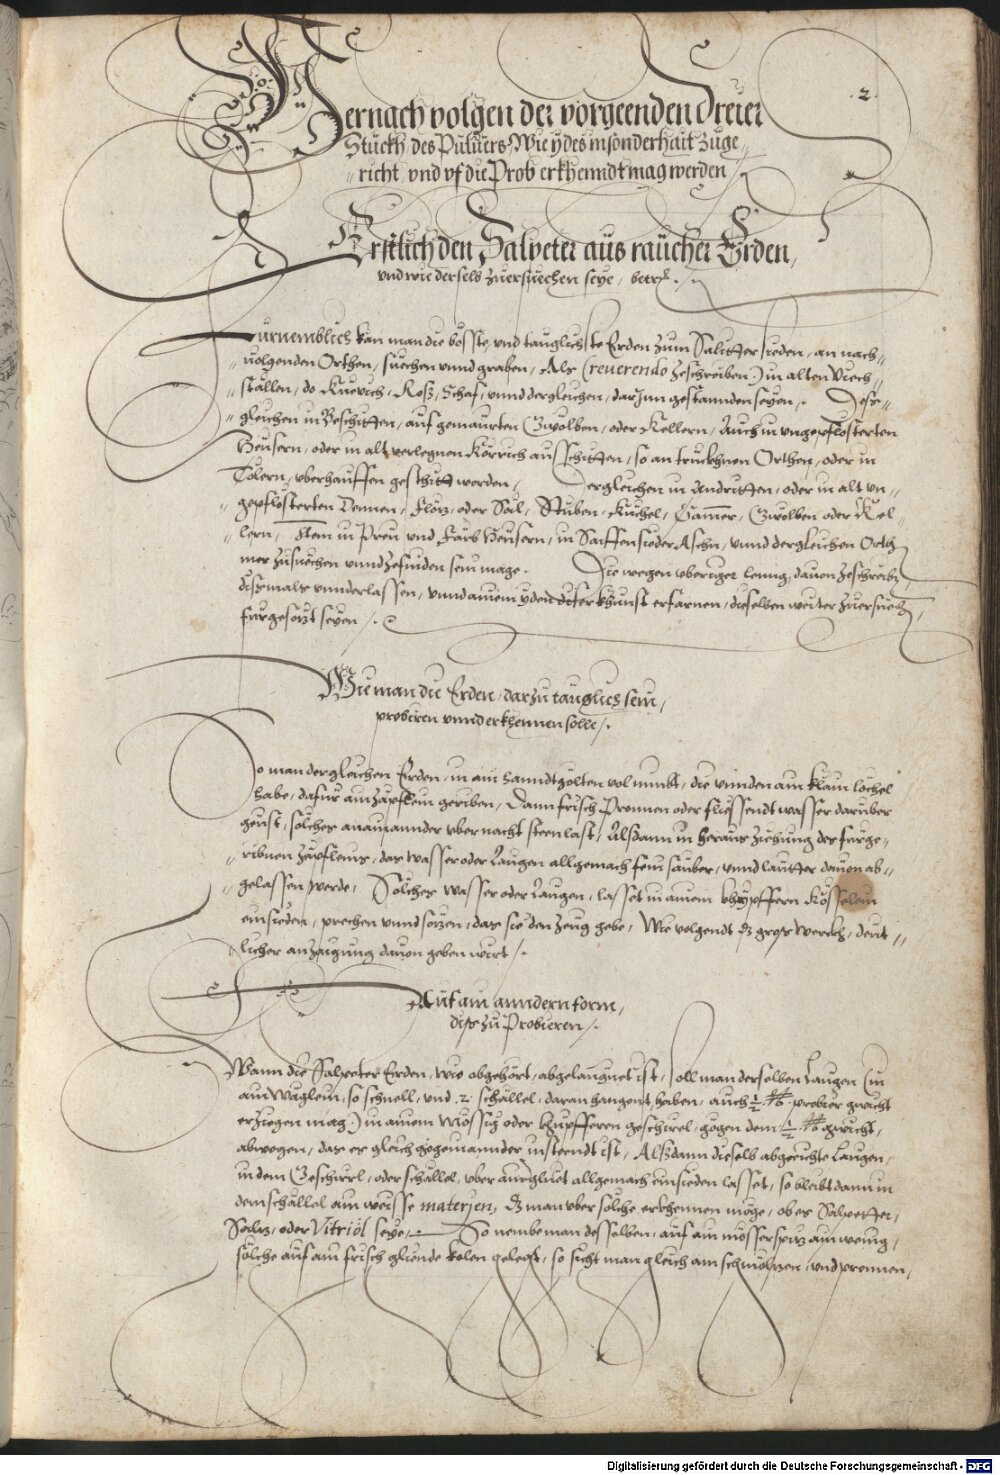 .2.
Hernach volgen der vorgeenden dreier
Stuckh des Puluers, Wie ydes insonderhait zuge„
„richt, vnd vf die Prob erkhenndt mag werden
Erstlich den Salpeter aus raucher Erden,
vnd wie derselb zuersuechen seye,
Furnemblich kan man die bösste, vnd tauglichste Erden zum Salitter sieden, an nach„
„uolgenden Orthen, suechen vnnd graben, Als (reuerendo zeschreiben) in alten Viech„
„ställen, do Kueuich, Roß, Schaf, vnnd dergleichen, darjnn gestannden seyen. Dess„
„gleichen in Beschitten, auf gemaurten Gwölben, oder Kellern, Auch in vngepflösterten
Heusern, oder in alt verlegnen Körrich ausschitten, so an truckhnen Orthen, oder in
Tölern, vberhauffen geschitt worden, Dergleichen in Andritten, oder in alt vn„
„gepflösterten Tennen, Flöz, oder Söl, Stuben, Kuchel, Camer, Gwölben oder Kel„
„lern, Item in Preu vnd Färb Heusern, in Saiffensieder Aschn, vnnd dergleichen Orth
mer zusuechen vnnd zefinden sein mage. Die wegen vberiger leng, dauon zeschreiben
dißmals vnnderlassen, vnnd ainem yden diser khunst erfarnen, dieselben weiter zuersuech
furgesetzt seyen
Wie man die Erden, darzu tauglich sein,
probiren vnnd erkhennen solle,
So man dergleichen Erden, in ain hanndtzölten vol nimbt, die vnnden ain klain löchel
habe, dafur ain zäpflein geriben, Dann frisch Pronnen oder fliessendt wasser darüber
geust, solches anainannder vber nacht steen last, Alßdann in heraus ziehung des furge„
„ribnen zäpfleins, das wasser oder Laugen allgemach fein sauber, vnnd lautter dauon ab„
„gelassen werde, Solches wasser oder Laugen, lasset in ainem khupffern Kösselein
einsieden, prechen vnnd setzen, das sie den zeug gebe, Wie volgendt dz gros werckh, deut„
„licher anzaigung dauon geben wirt
Auf ain anndern form,
diss zu Probieren
Wann die Salpeter Erden, wie obgehört, abgelaugnet ist, soll man derselben Laugen (in
ain Wäglein, so schnell, vnd .2. schällel, daran hangent, haben, auch ½ ℔. probier gwicht
erziegen mag) in ainem Mössig oder khupfferen geschirel, gegen dem ½ ℔ gwicht,
abwegen, das es gleich gegenainnder insteendt ist, Alßdann dieselb abgerichte Laugen,
in dem Geschirrl, oder schällel, vber ainer gluet allgemach einsieden lasset, so bleibt dann in
dem schällel ain weisse materjen, dz man vber solche erkhennen möge, ob es Salpetter,
Saltz, oder Vitriol seye, So nembe man desselben, auf ain mösserspitz ain wenig,
solche auf ain frisch gliende kolen gelegt, so sicht man gleich am schmöltzen, vnd prennen,
Digitalisierung gefördert durch die Deutsche Forschungsgemeinschaft - DFG